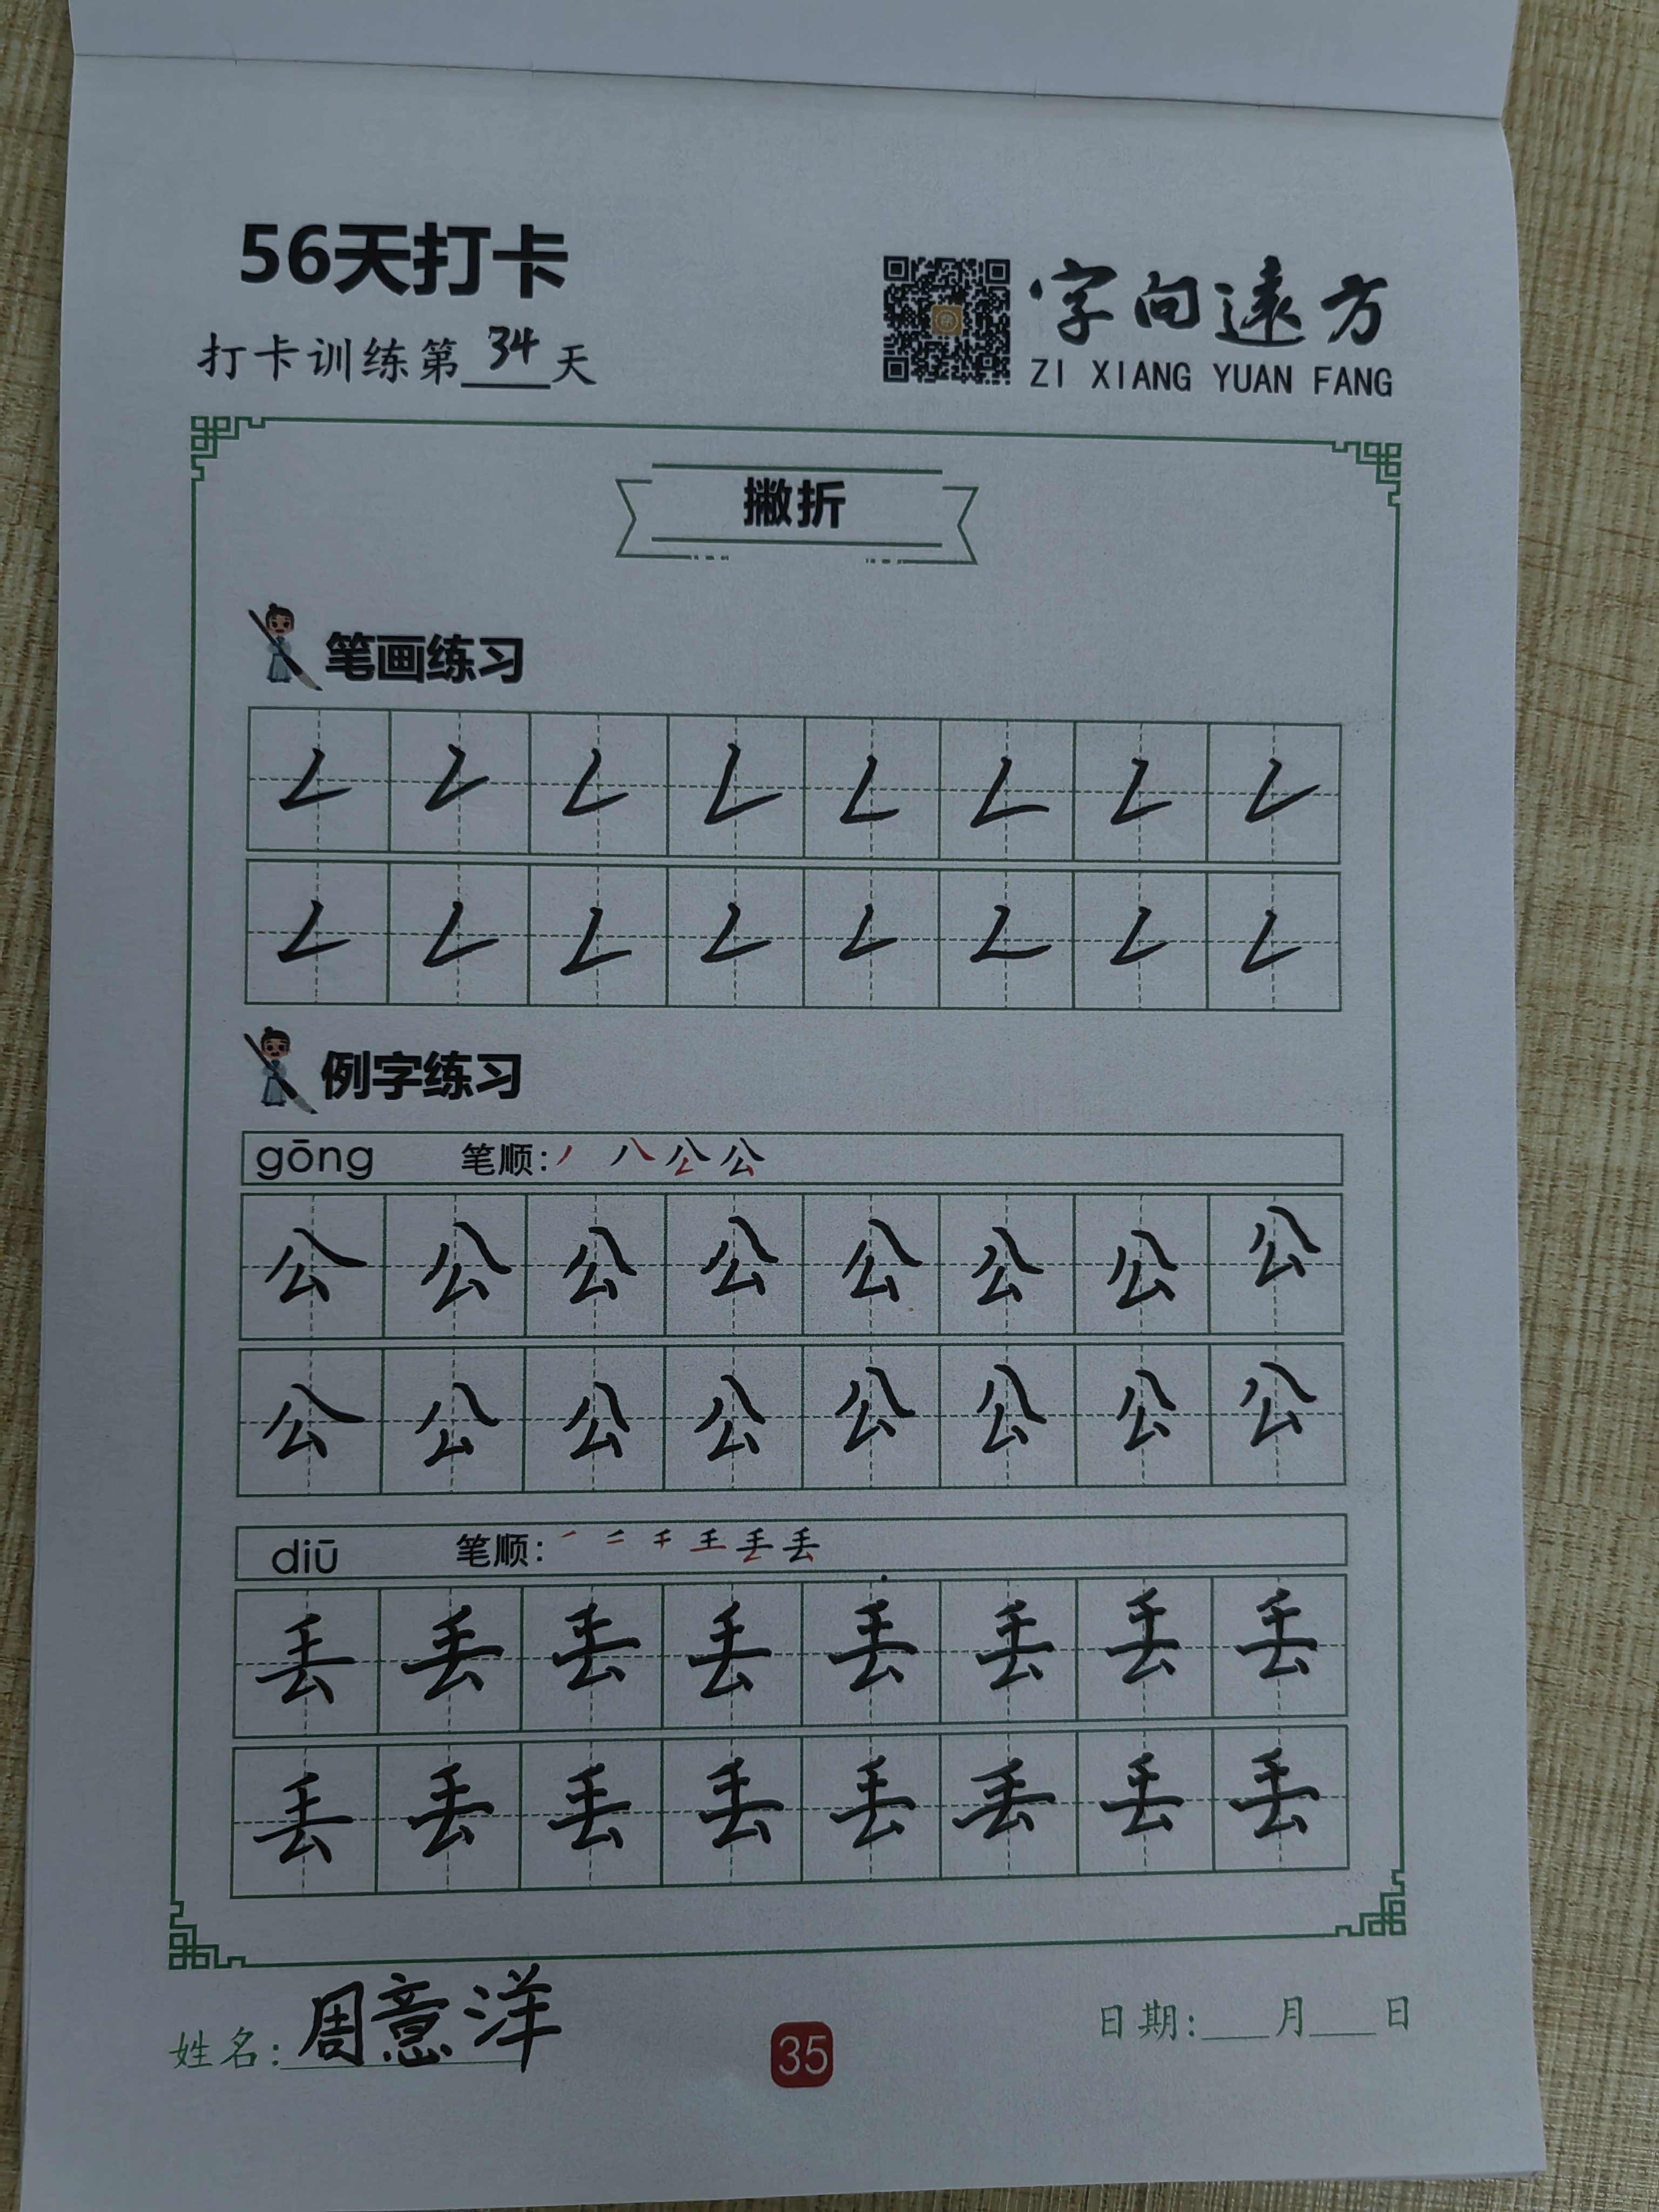 56天打卡
打卡训练第34天
字向遠方
ZI XIANG YUAN FANG
撇折
笔画练习
𠃋 𠃋 𠃋 𠃋 𠃋 𠃋 𠃋 𠃋
𠃋 𠃋 𠃋 𠃋 𠃋 𠃋 𠃋 𠃋
例字练习
gōng 笔顺: 丿 八 公 公
公 公 公 公 公 公 公 公
公 公 公 公 公 公 公 公
diū 笔顺:
丢 丢 丢 丢 丢 丢 丢 丢
丢 丢 丢 丢 丢 丢 丢 丢
姓名: 周意洋
35
日期: 月 日